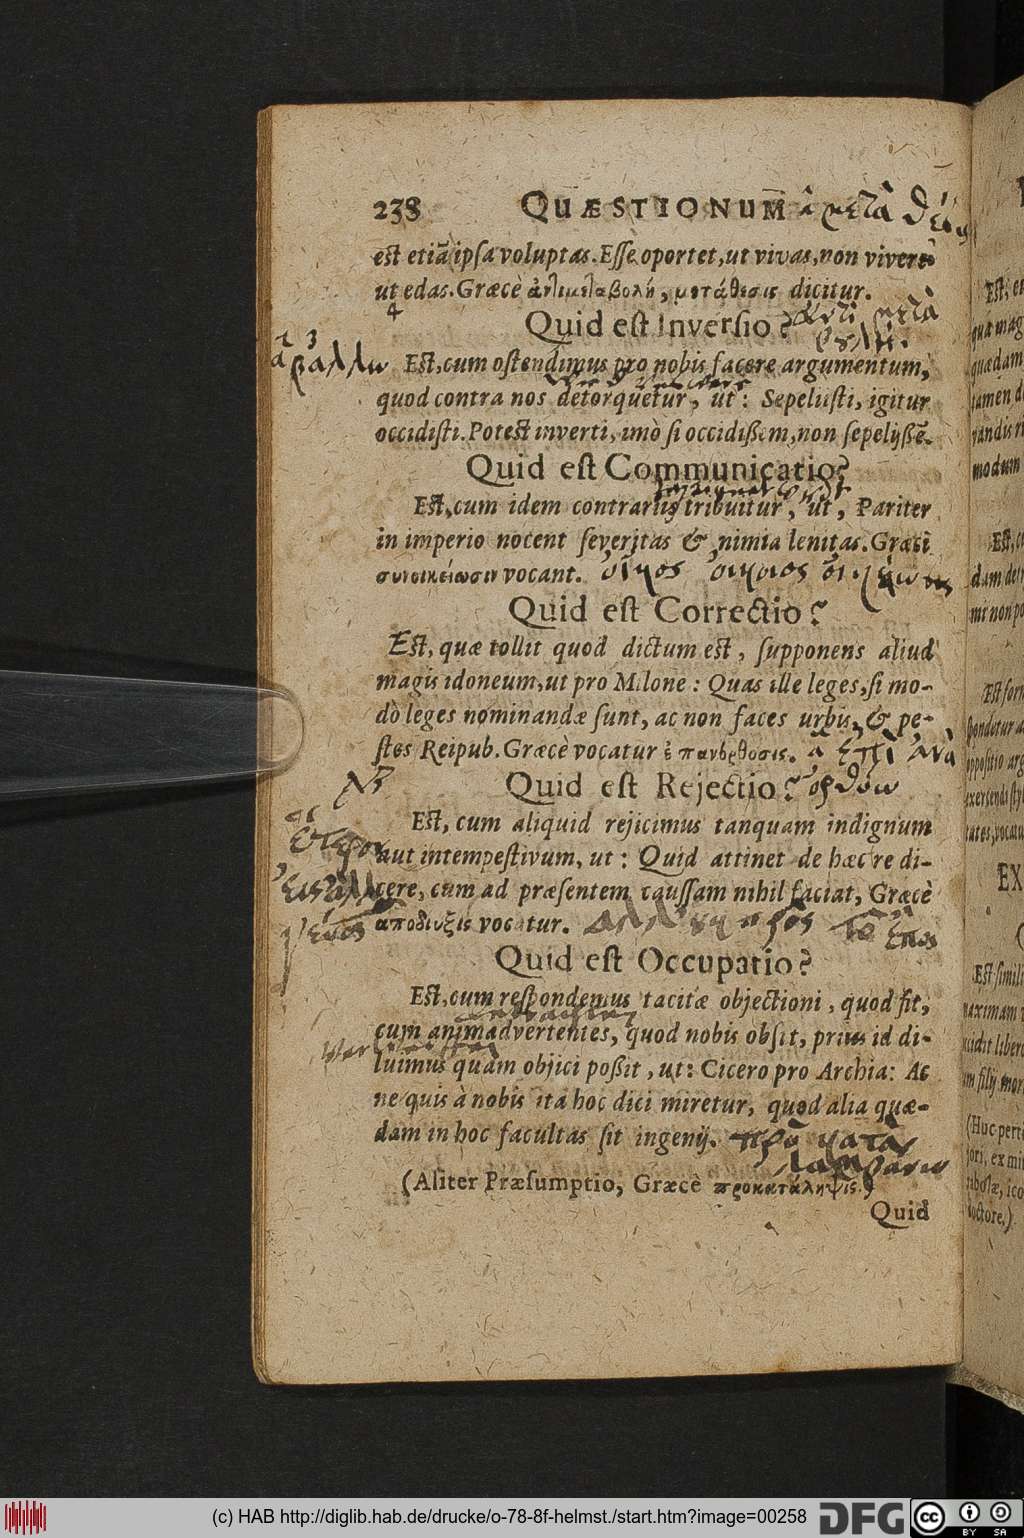 238 QUÆSTIONUM ἀ μετὰ
est etiā ipsa voluptas. Esse oportet, ut vivas, non vivere
ut edas. Græcè ἀντιμεταβολή, μετάθεσις dicitur.
4
Quid est Inversio? ἀντὶ μετὰ
Est, cum ostendimus pro nobis facere argumentum,
quod contra nos detorquetur, ut: Sepelusti, igitur
occidisti. Potest inverti, imò si occidißem, non sepelijßē.
Quid est Communicatio?
Est, cum idem contrarijs tribuitur, ut, Pariter
in imperio nocent severitas & nimia lenitas. Græci
συνοικείωσιν vocant. οἶκος οἰκιος
Quid est Correctio?
Est, quæ tollit quod dictum est, supponens aliud
magis idoneum, ut pro Milone: Quas ille leges, si mo-
dò leges nominandæ sunt, ac non faces urbis, & pe-
stes Reipub. Græcè vocatur ἐπανόρθοσις. ἀ ἐπὶ ἀνὰ
Quid est Rejectio? ορθόω
Est, cum aliquid rejicimus tanquam indignum
ἕτερον
aut intempestivum, ut: Quid attinet de hæc re di-
cere, cum ad præsentem caussam nihil faciat, Græcè
γένος
αποδιωξις vocatur. τὸ ἔπος
Quid est Occupatio?
Est, cum respondemus tacitæ objectioni, quod fit,
cum animadvertentes, quod nobis obsit, prius id di-
luimus quàm objici poßit, ut: Cicero pro Archia: Ac
ne quis à nobis ita hoc dici miretur, quod alia quæ-
dam in hoc facultas sit ingenij. πρὸ κατὰ
λαμβάνω
(Aliter Præsumptio, Græcè προκατάληψις.)
Quid
(c) HAB http://diglib.hab.de/drucke/o-78-8f-helmst./start.htm?image=00258 DFG cc BY SA